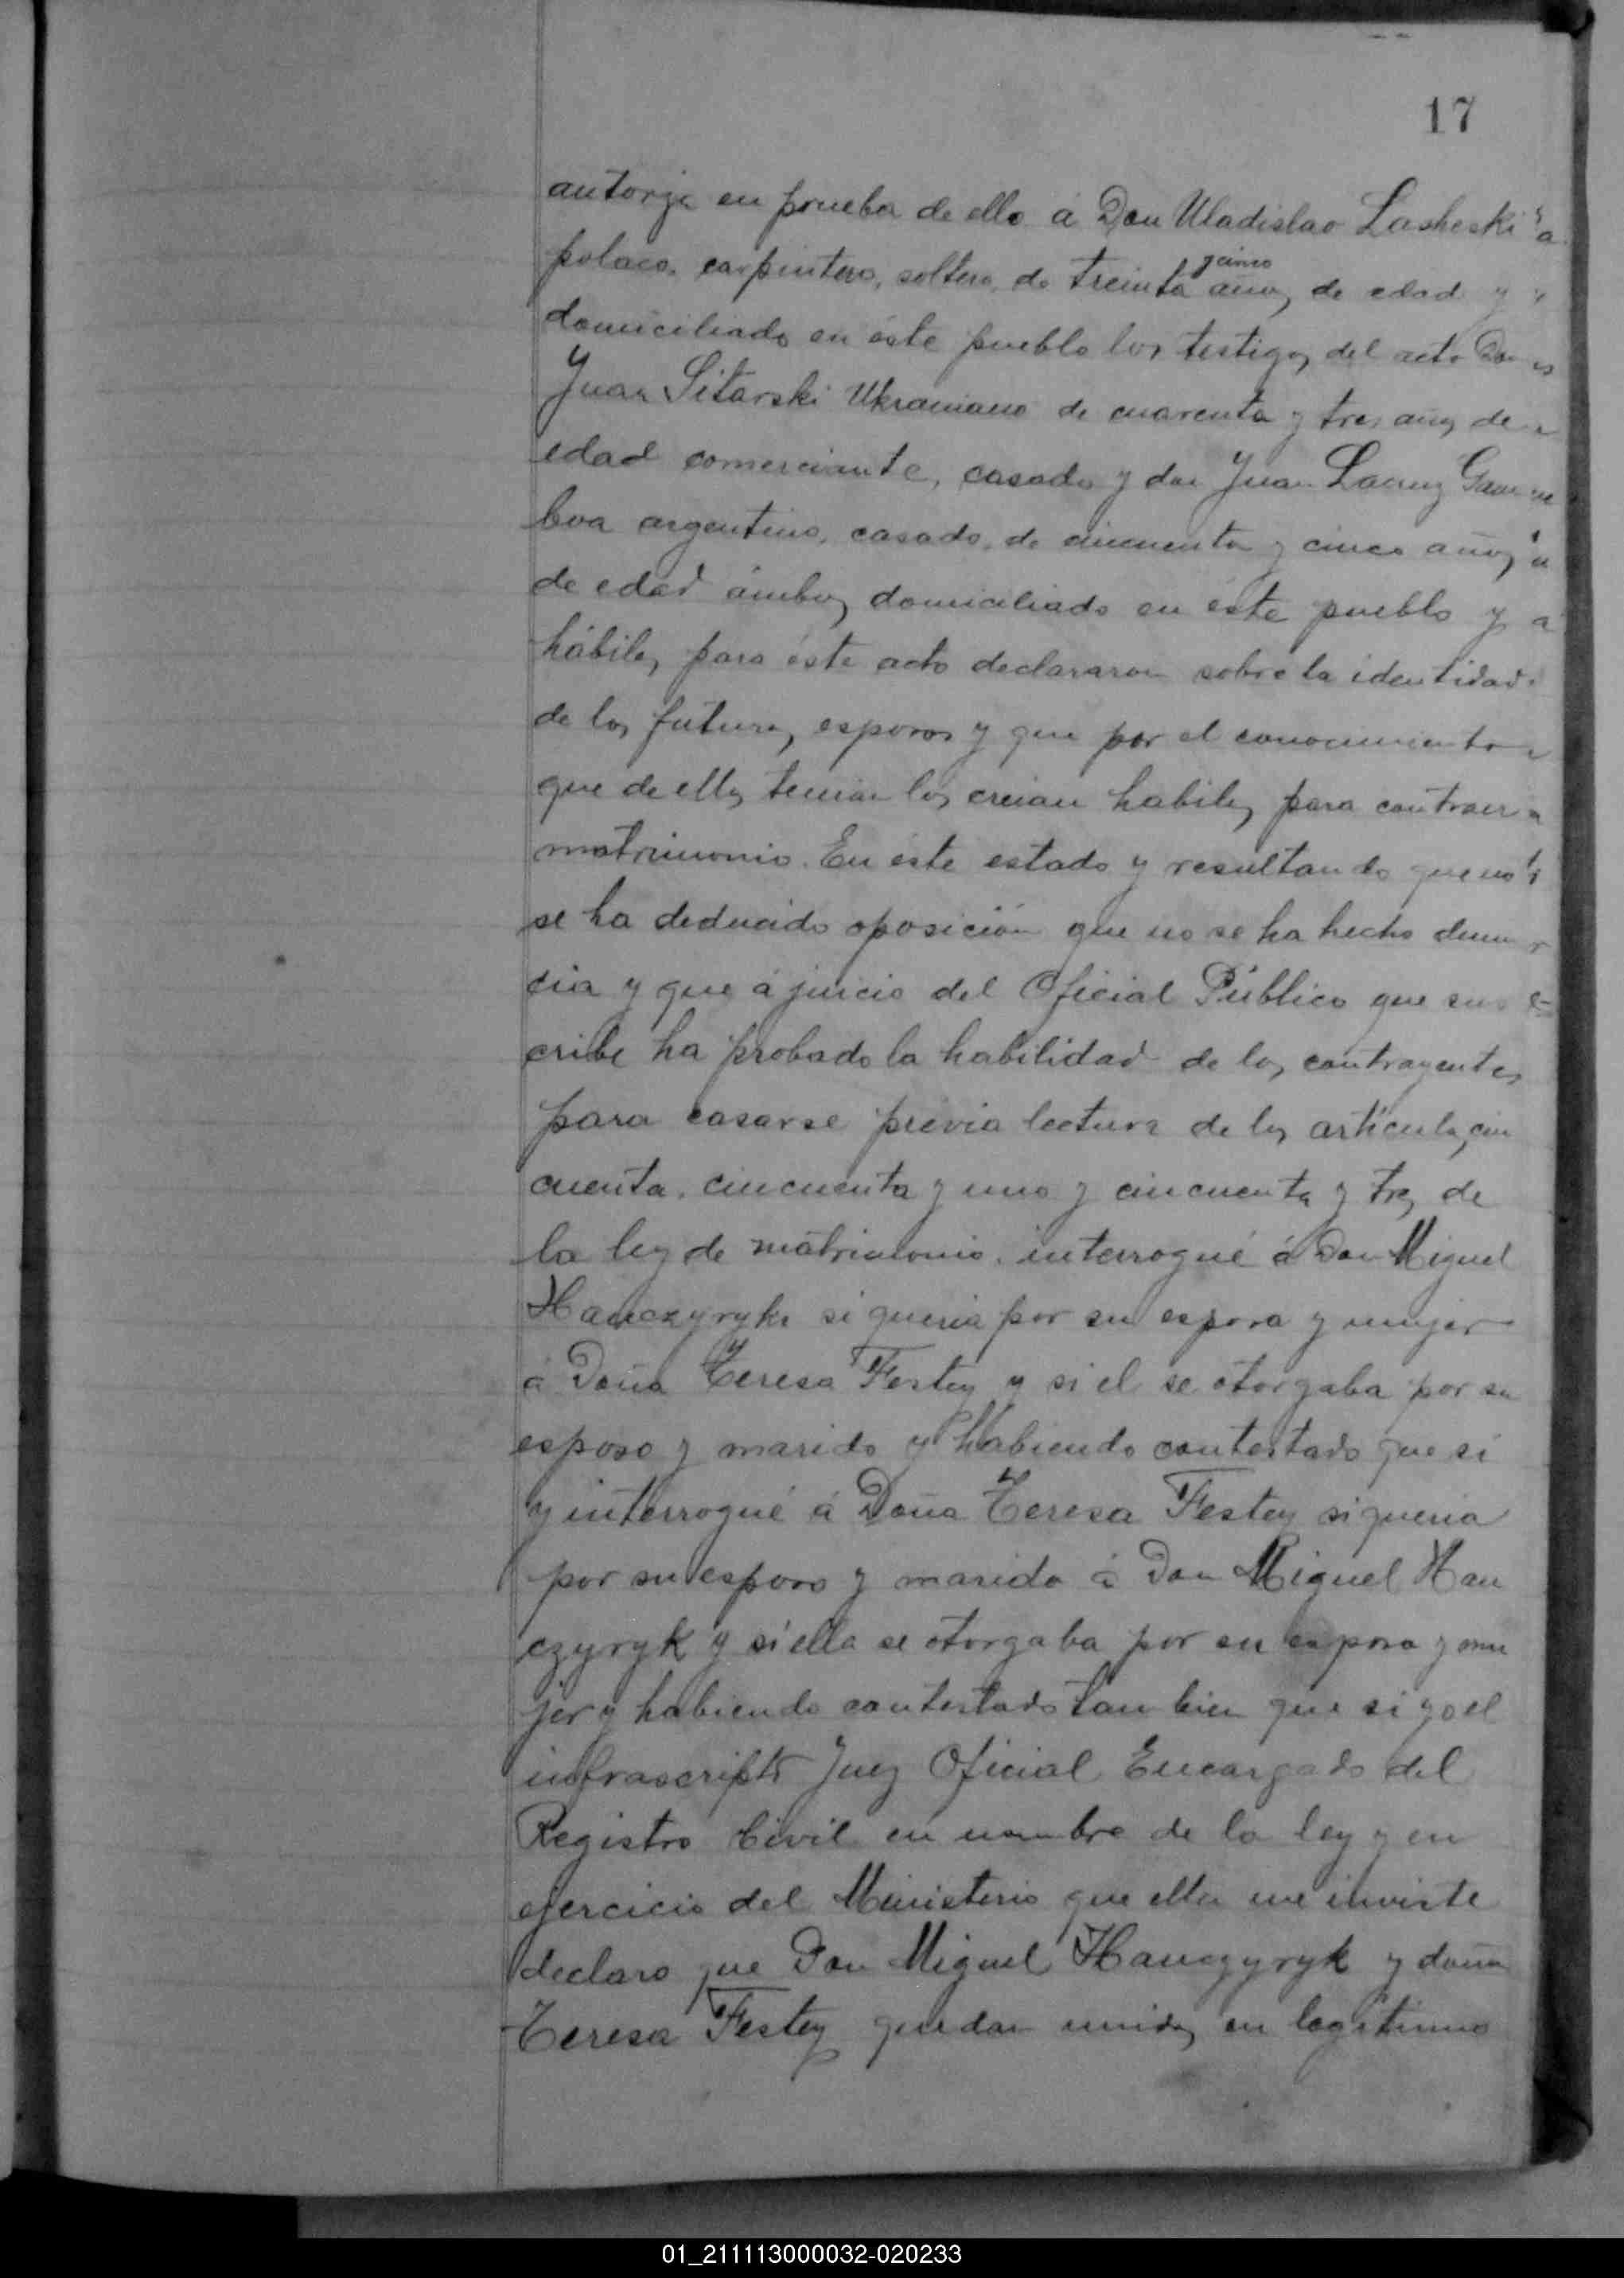 17
autorga en prueba de ello á Don Uladislao Lasheski
polaco, carpintero, soltero, de treinta y cinco años, de edad y
domiciliado en éste pueblo los testigos del acto Don
Juan Sitarski Ukraniano de cuarenta y tres años de
edad comerciante, casado y don Juan Lacruz Gam
boa argentino, casado, de cincuenta y cinco años,
de edad ámbos domiciliado en éste pueblo y
hábiles para éste acto declararon sobre la identidad
de los futuros esposos y que por el conocimiento
que de ellos tenian los creian habiles para contraer
matrimonio. En éste estado y resultando que no
se ha deducido oposición que no se ha hecho denun
cia y que á juicio del Oficial Público que sus
cribe ha probado la habilidad de los contrayentes
para casarse previa lectura de los artículos cin
cuenta, cincuenta y uno y cincuenta y tres de
la ley de matrimonio, interrogué á Don Miguel
Hanczyryk si queria por su esposa y mujer
á Doña Teresa Festey y si el se otorgaba por su
esposo y marido y habiendo contestado que si
y interrogué á Doña Teresa Festey si queria
por su esposo y marido á Don Miguel Han
czyryk y si ella se otorgaba por su esposa y mu
jer y habiendo contestado tan bien que si yo el
infrascripto Juez Oficial Encargado del
Registro Civil en nombre de la ley y en
ejercicio del Ministerio que ella me inviste
declaro que Don Miguel Hanczyryk y doña
Teresa Festey quedan unidos en legítimo
01_211113000032-020233